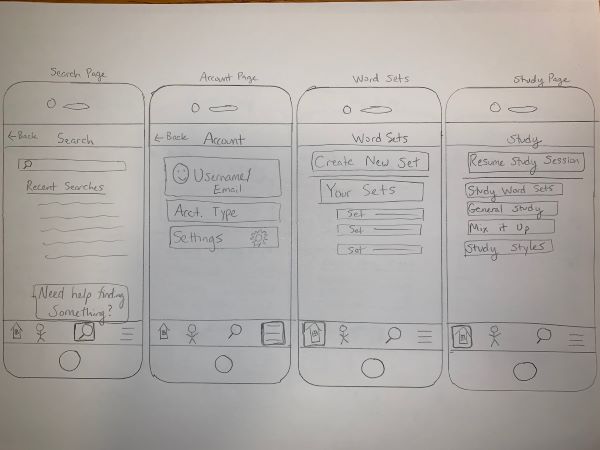 Search Page
← Back Search
Recent Searches
Need help finding
Something?
Account Page
← Back Account
Username/
Email
Acct. Type
Settings
Word Sets
Word Sets
Create New Set
Your Sets
Set
Set
Set
Study Page
Study
Resume Study Session
Study Word Sets
General Study
Mix it Up
Study Styles